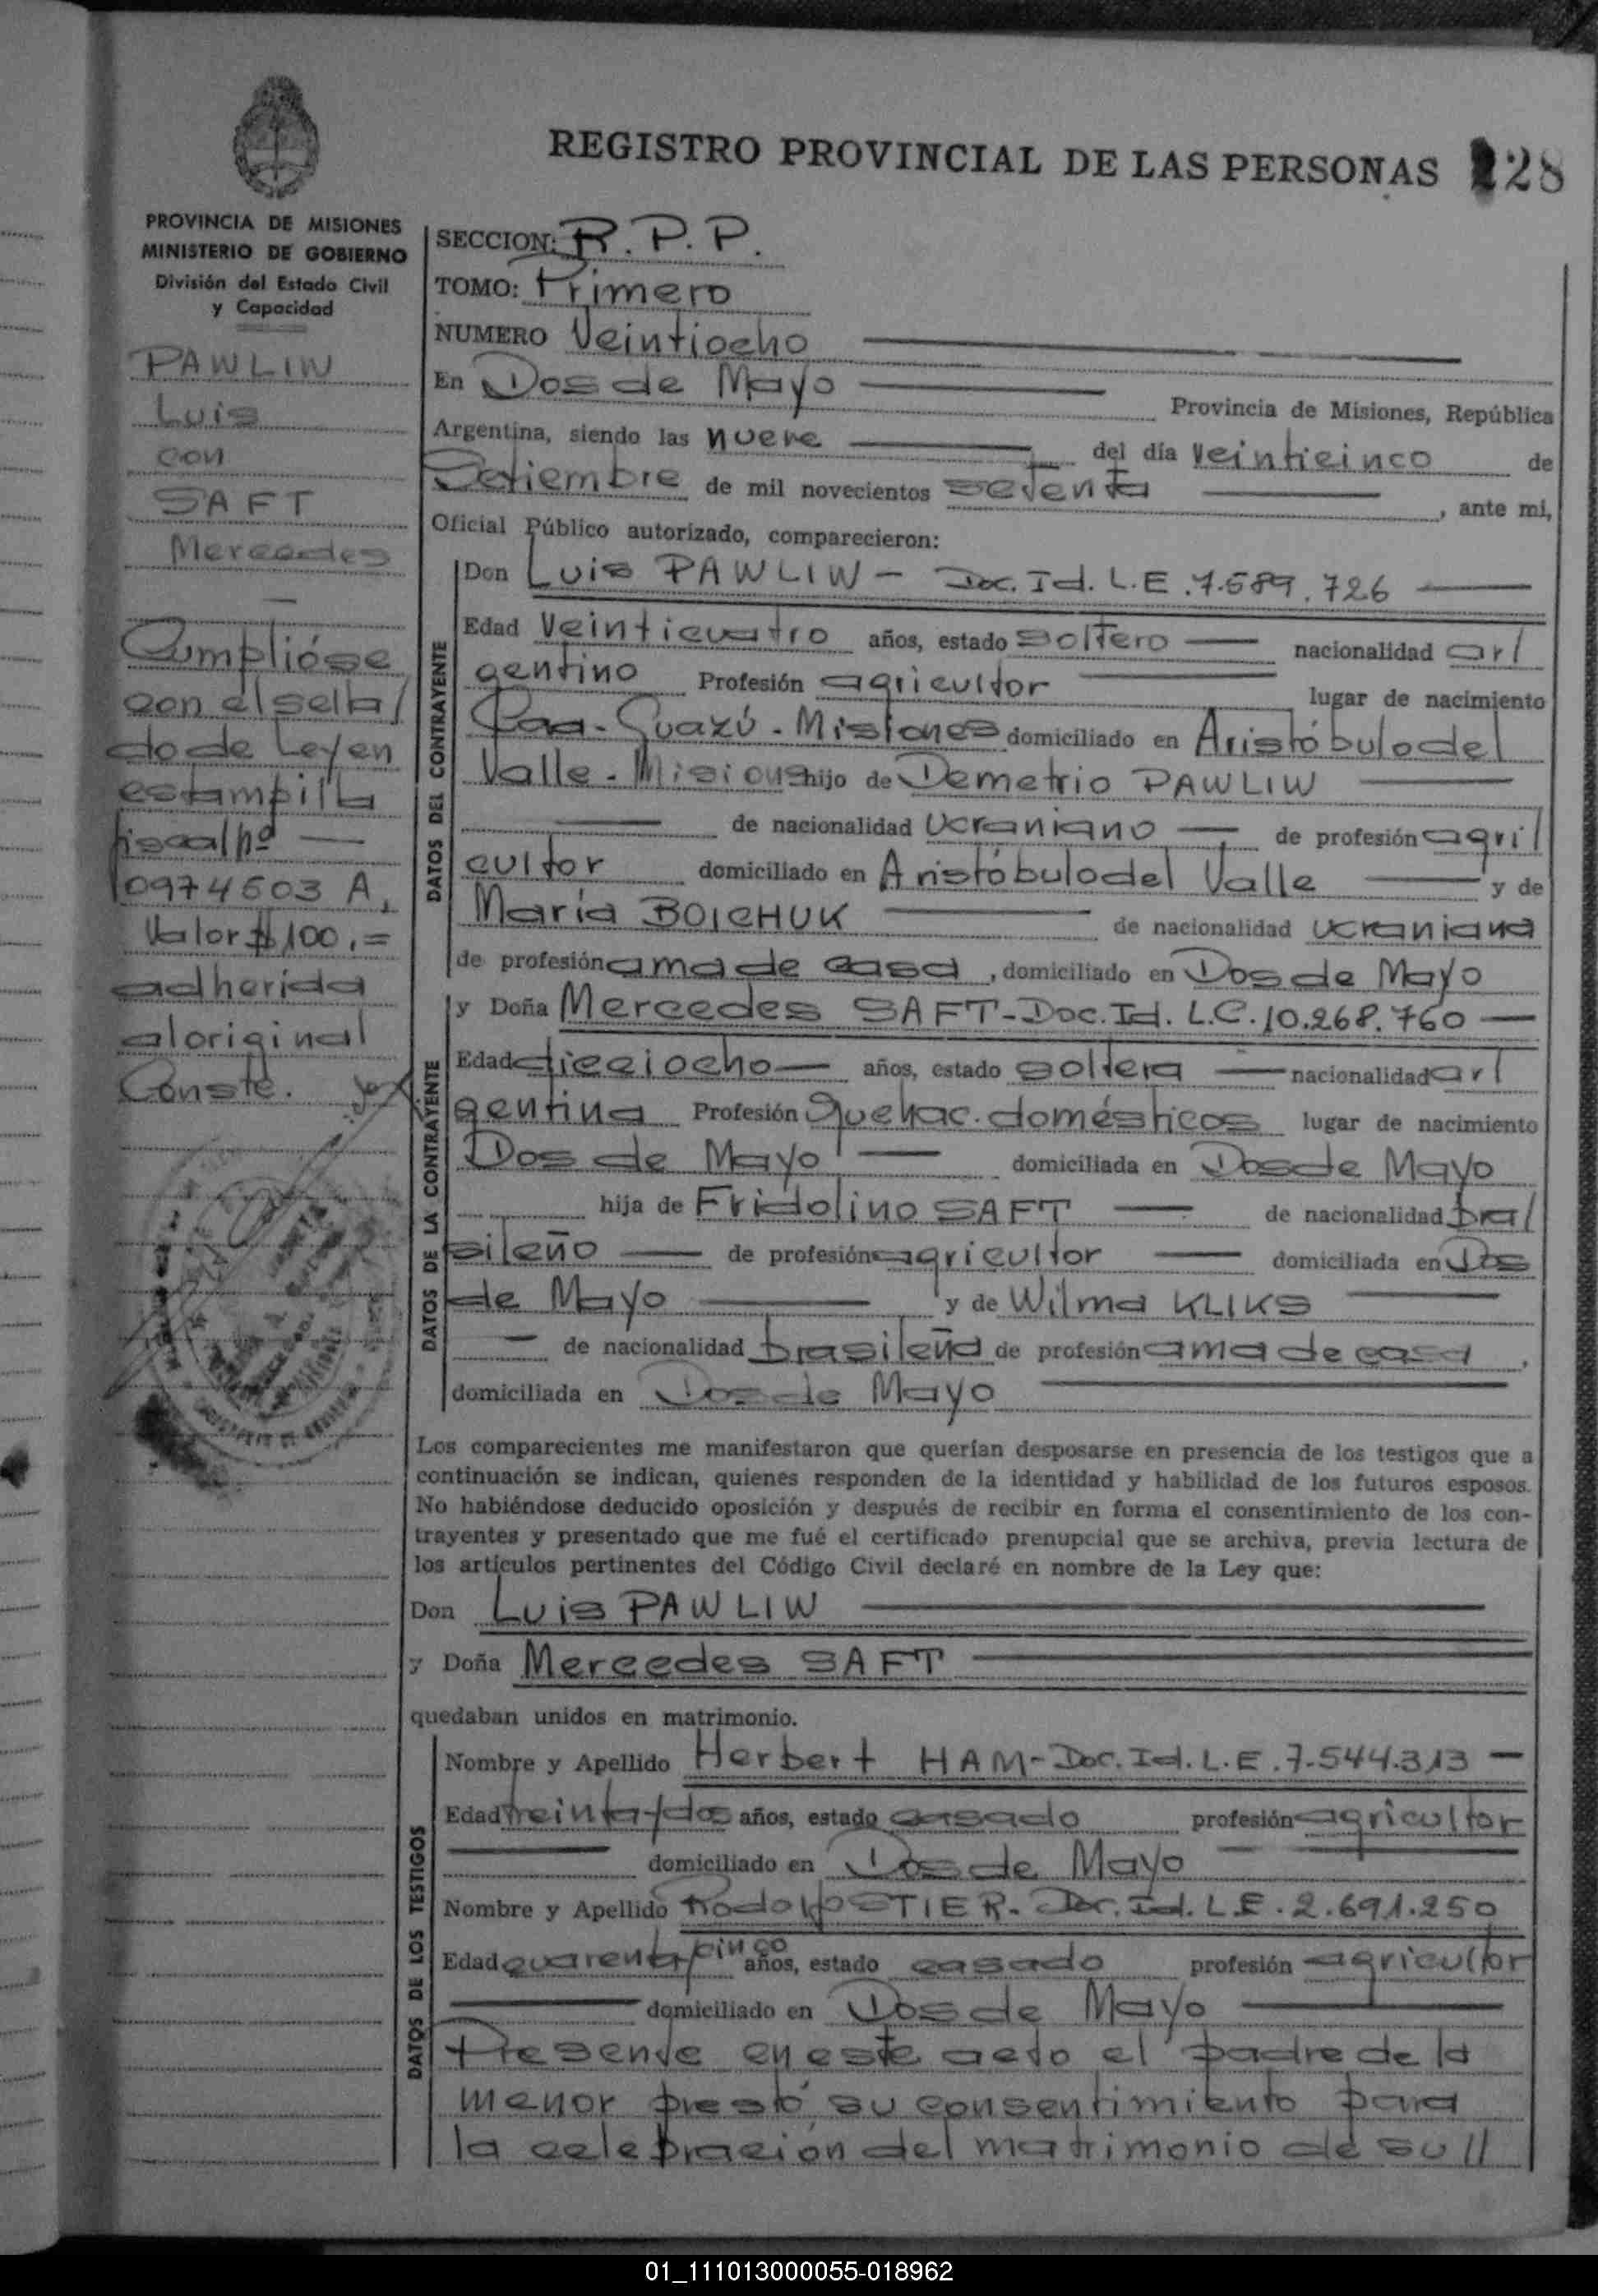 REGISTRO PROVINCIAL DE LAS PERSONAS 28
PROVINCIA DE MISIONES
MINISTERIO DE GOBIERNO
División del Estado Civil
y Capacidad
PAWLIW
Luis
con
SAFT
Mercedes
Cumplióse
con el sella/
do de Ley en
estampilla
fiscal nº
0974503 A,
Valor $ 100,=
adherida
al original
Conste.
SECCION: R. P. P.
TOMO: Primero
NUMERO Veintiocho
En Dos de Mayo Provincia de Misiones, República
Argentina, siendo las nueve del día veinticinco de
Setiembre de mil novecientos setenta, ante mi,
Oficial Público autorizado, comparecieron:
DATOS DEL CONTRAYENTE
Don Luis PAWLIW - Doc. Id. L.E. 7.589.726
Edad Veinticuatro años, estado soltero nacionalidad ar/
gentino Profesión agricultor lugar de nacimiento
Guazú - Misiones domiciliado en Aristóbulo del
Valle - Misiones hijo de Demetrio PAWLIW
de nacionalidad Ucraniano de profesión agri/
cultor domiciliado en Aristóbulo del Valle y de
María BOICHUK de nacionalidad ucraniana
de profesión ama de casa, domiciliado en Dos de Mayo
DATOS DE LA CONTRAYENTE
y Doña Mercedes SAFT - Doc. Id. L.C. 10.268.760
Edad dieciocho años, estado soltera nacionalidad ar/
gentina Profesión quehac. domésticos lugar de nacimiento
Dos de Mayo domiciliada en Dos de Mayo
hija de Fridolino SAFT de nacionalidad bra/
sileño de profesión agricultor domiciliada en Dos
de Mayo y de Wilma KLIKS
de nacionalidad brasileña de profesión ama de casa,
domiciliada en Dos de Mayo
Los comparecientes me manifestaron que querían desposarse en presencia de los testigos que a
continuación se indican, quienes responden de la identidad y habilidad de los futuros esposos.
No habiéndose deducido oposición y después de recibir en forma el consentimiento de los con-
trayentes y presentado que me fué el certificado prenupcial que se archiva, previa lectura de
los artículos pertinentes del Código Civil declaré en nombre de la Ley que:
Don Luis PAWLIW
y Doña Mercedes SAFT
quedaban unidos en matrimonio.
DATOS DE LOS TESTIGOS
Nombre y Apellido Herbert HAM - Doc. Id. L.E. 7.544.313
Edad treinta y dos años, estado casado profesión agricultor
domiciliado en Dos de Mayo
Nombre y Apellido Rodolfo STIER - Doc. Id. L.E. 2.691.250
Edad cuarenta y cinco años, estado casado profesión agricultor
domiciliado en Dos de Mayo
Presente en este acto el padre de la
menor prestó su consentimiento para
la celebración del matrimonio de su //
01_111013000055-018962